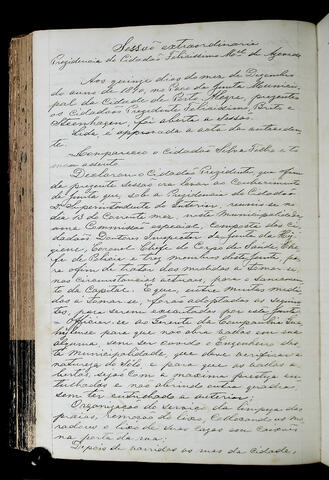 Sessão extraordinaria
Presidencia do Cidadão Felicissimo M. de Azevedo
Aos quinze dias do mez de Dezembro
do anno de 1890, no Paço da Junta Munici-
pal da Cidade de Porto Alegre, presentes
os Cidadãos Presidente Felicissimo, Brito e
Steenhagen, foi aberta a Sessão.
Lida é approvada a acta da anteceden-
te.
Compareceo o Cidadão Silva Filho e to-
mou assento.
Declarou o Cidadão Presidente, que o fim
da prezente Sessão era levar ao Conhecimento
da Junta que, sob a Presidencia do Cidadão
Superintendente do Interior, reunio-se no
dia 13 do Corrente mez, neste Municipalidade,
uma Commissão especial, composta dos Ci-
dadãos Doutores Inspector da Junta de Hy-
giene, Coronel Chefe do Corpo de Saude, Che-
fe de Policia e tres membros desta Junta, pa-
ra o fim de tratar das medidas a tomar-se,
nas circumstancias actuaes, para o saneamen-
to da Capital. E que, entre muitas medi-
das a tomar-se, forão adoptadas as seguin-
tes, para serem executadas por esta Junta:
Officiar-se ao Gerente da Companhia Gua-
hybense para que não abra vallas em rua
alguma, sem ser ouvido o Engenheiro des-
ta Municipalidade, que deve verificar a
natureza do Solo, e para que as vallas a-
bertas, sejão com a maxima presteza en-
tulhadas e não abrindo outra quadra
sem ter entulhado a anterior;
Organisação do serviço da limpeza das
praias, remoção do lixo, collocando os mo-
radores o lixo de suas casas em caixões
na porta da rua;
Depois de varridas as ruas da cidade,